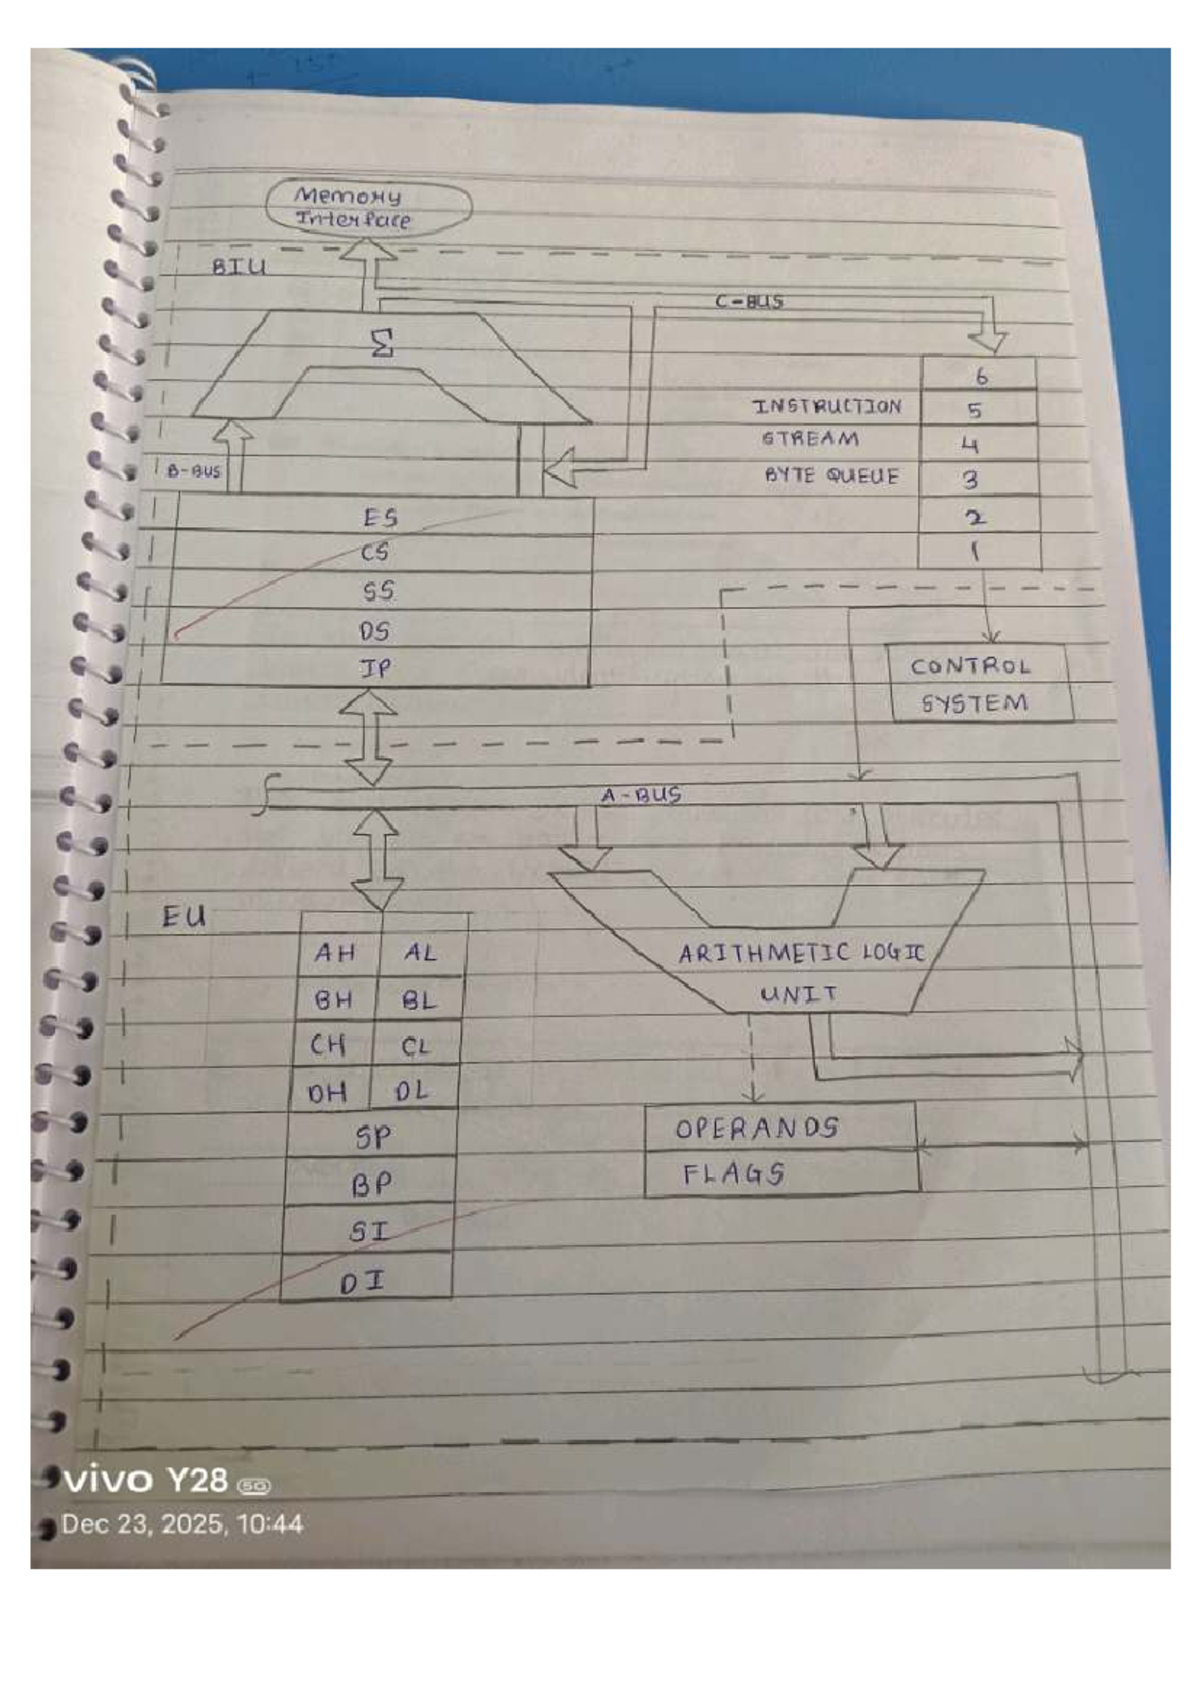 Memory
Interface
BIU
C-BUS
Σ
6
INSTRUCTION 5
STREAM 4
BYTE QUEUE 3
2
1
B-BUS
ES
CS
SS
DS
IP
CONTROL
SYSTEM
A-BUS
EU
AH AL
BH BL
CH CL
DH DL
SP
BP
SI
DI
ARITHMETIC LOGIC
UNIT
OPERANDS
FLAGS
vivo Y28 5G
Dec 23, 2025, 10:44